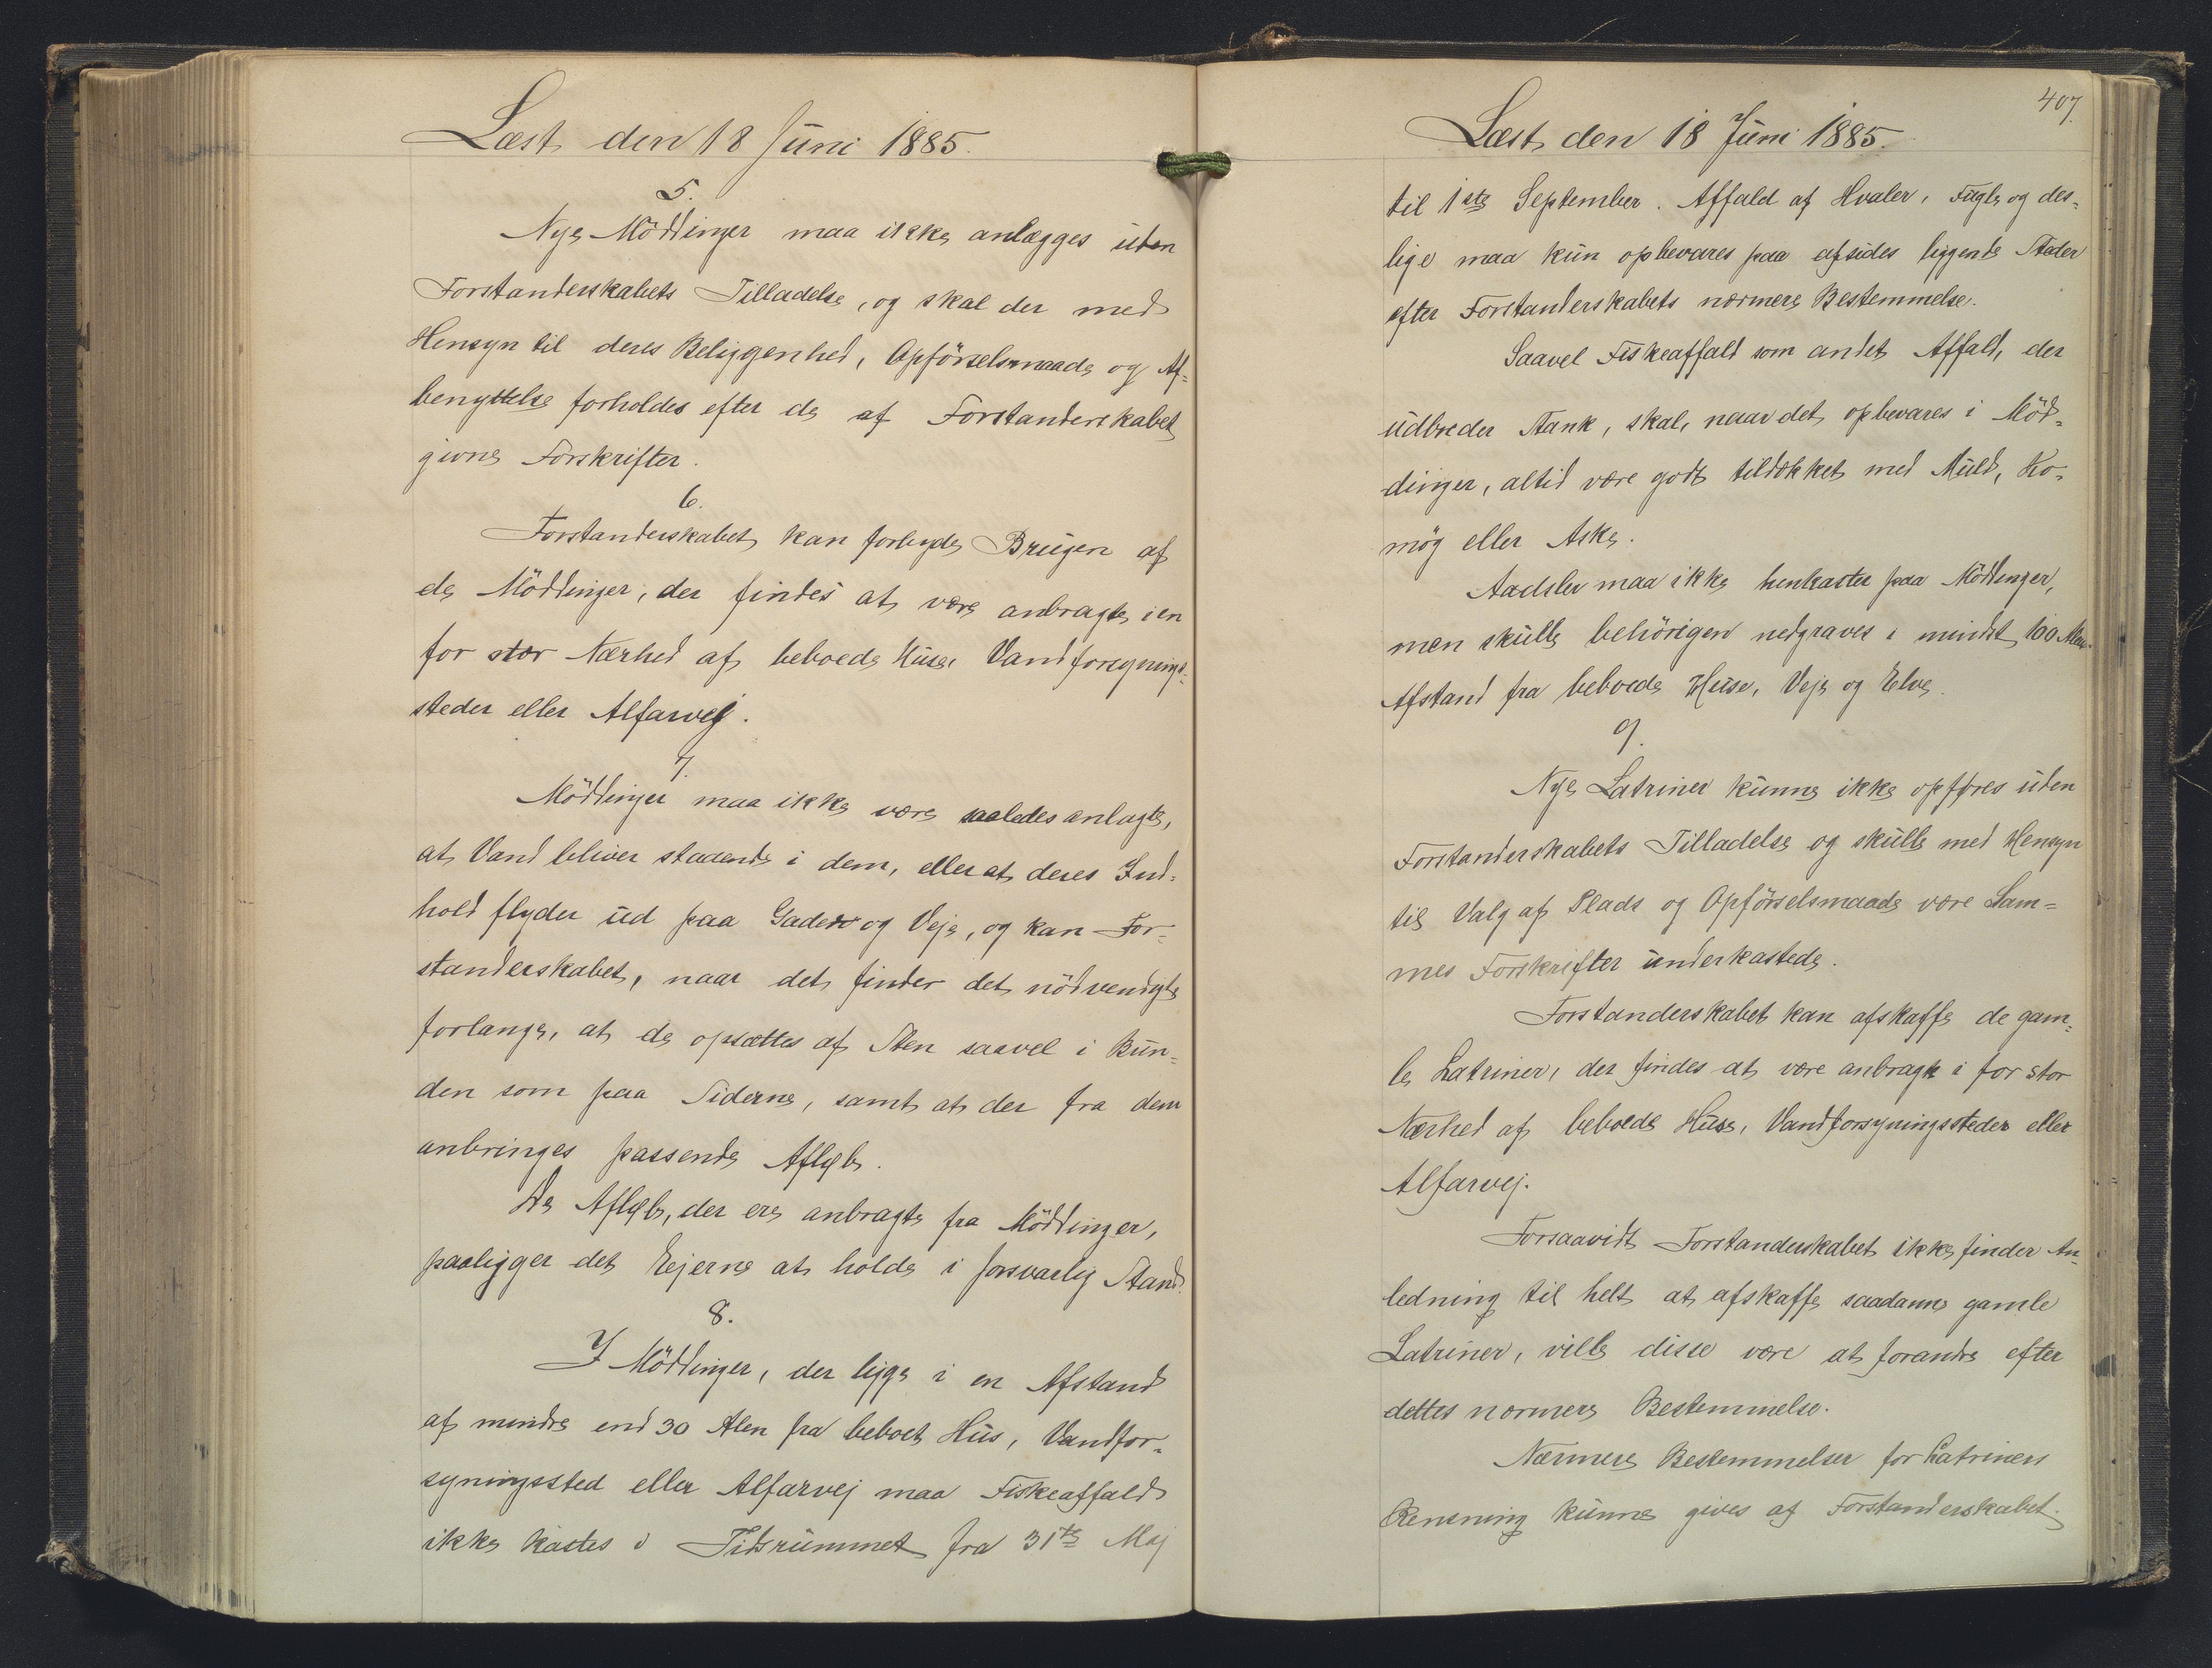 Læst den 18 Juni 1885.
5.
Nye Möddinger maa ikke anlægges uden
Forstanderskabets Tilladelse, og skal der med
Hensyn til deres Beliggenhed, Opförselsmaade og Af-
benyttelse forholdes efter de af Forstanderskabet
givne Forskrifter.
6.
Forstanderskabet kan forbyde Brugen af
de Möddinger, der findes at være anbragte i en
for stor Nærhed af beboede Huse, Vandforsynings-
steder eller Alfarvej.
7.
Möddinger maa ikke være saaledes anlagte,
at Vand bliver staaende i dem, eller at deres Ind-
hold flyder ud paa Gader og Veje, og kan For-
standerskabet, naar det finder det nödvendigt
forlange, at de opsættes af Sten saavel i Bun-
den som paa Siderne, samt at der fra dem
anbringes passende Afløb.
De Afløb, der ere anbragte fra Möddinger,
paaligger det Ejerne at holde i forsvarlig Stand.
8.
I Möddinger, der ligge i en Afstand
af mindre end 30 Alen fra beboet Hus, Vandfor-
syningssted eller Alfarvej maa Fiskeaffald
ikke kastes i Tidsrummet fra 31te Maj
407.
Læst den 18 Juni 1885.
til 1ste September. Affald af Hvaler, Fugle og des-
lige maa kun opbevares paa afsides liggende Steder
efter Forstanderskabets nærmere Bestemmelse.
Saavel Fiskeaffald som andet Affald, der
udbreder Stank, skal, naar det opbevares i Möd-
dinger, altid være godt tildækket med Muld, Ko-
møg eller Aske.
Aadsler maa ikke henkastes paa Möddinger,
men skulle behörigen nedgraves i mindst 100 Alen
Afstand fra beboede Huse, Veje og Elve.
9.
Nye Latriner kunne ikke opføres uden
Forstanderskabets Tilladelse og skulle med Hensyn
til Valg af Plads og Opförselsmaade være Sam-
mes Forskrifter underkastede.
Forstanderskabet kan afskaffe de gam-
le Latriner, der findes at være anbragte i for stor
Nærhed af beboede Huse, Vandforsyningssteder eller
Alfarvej.
Forsaavidt Forstanderskabet ikke finder An-
ledning til helt at afskaffe saadanne gamle
Latriner, ville disse være at forandre efter
dettes nærmere Bestemmelse.
Nærmere Bestemmelser for Latriners
Rensning kunne gives af Forstanderskabet.